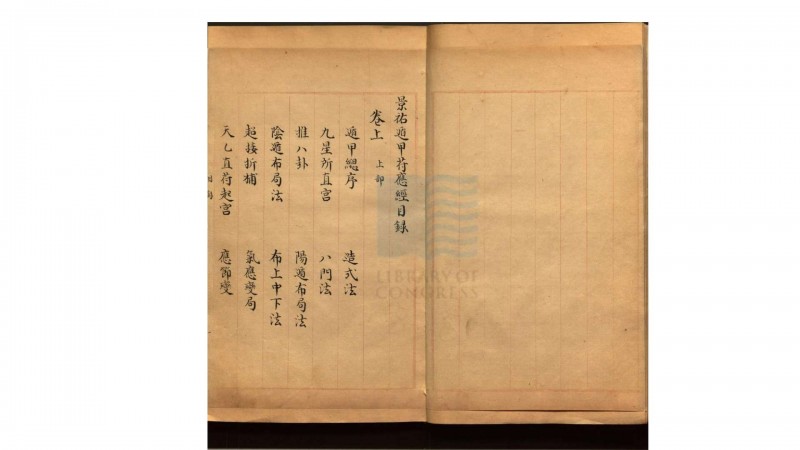 景祐遁甲符應經目録
卷上 上部
遁甲總序 造式法
九星所直宮 八門法
推八卦 陽遁布局法
陰遁布局法 布上中下法
超接折補 氣應變局
天乙直符起宮 應節變
LIBRARY OF
CONGRESS